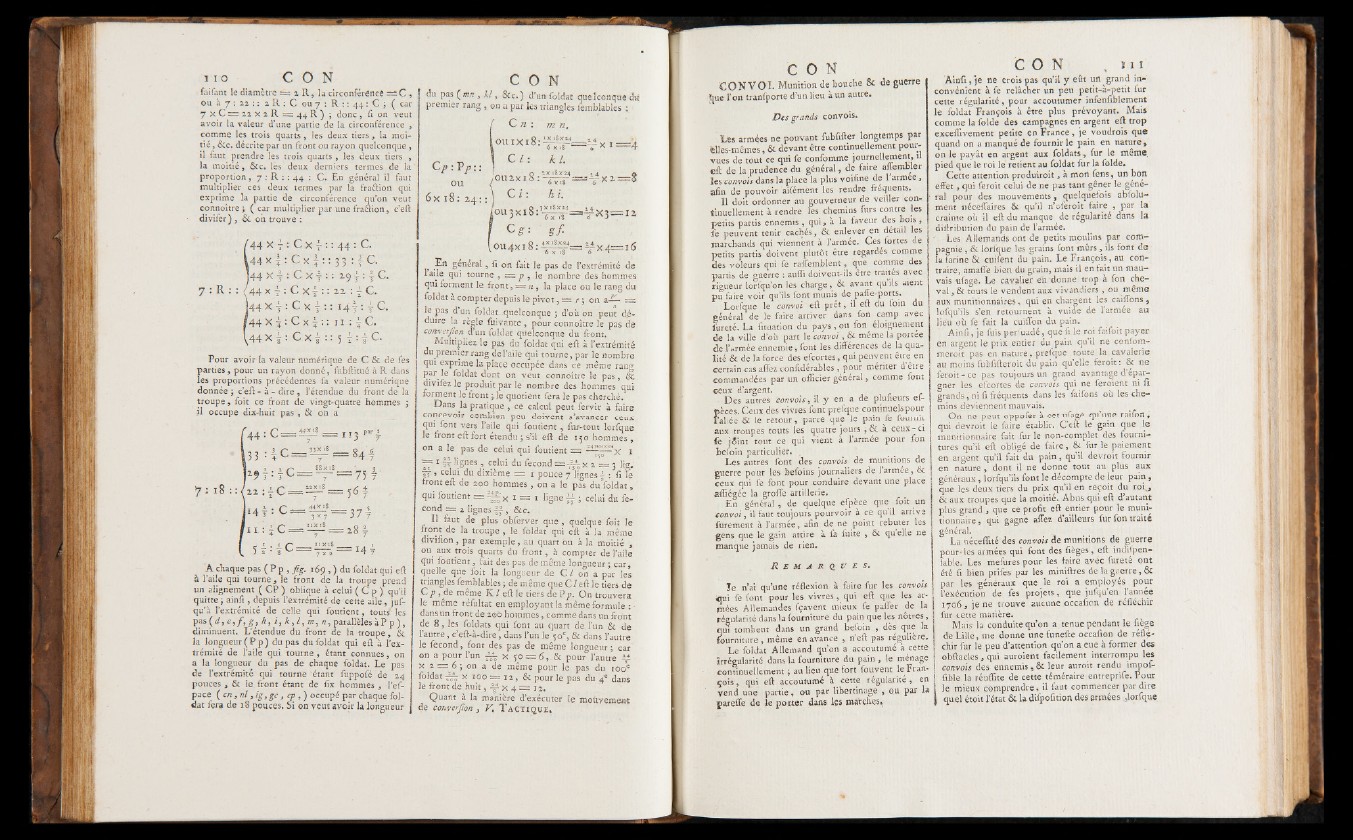 110 CON
faisant le diamètre = 2 R, la circonférence = C,
ou à 7 : 22 :: 2 R : C ou 7 : R :: 44 : C ; ( car
7 x C = 22 x 2 R = 44 R ) ; donc, si on veut
avoir la valeur d'une partie de la circonférence ,
comme les trois quarts, les deux tiers, la moi-
tié, &c. décrite par un front ou rayon quelconque,
il faut prendre les trois quarts, les deux tiers ,
la moitié, &c. les deux derniers termes de la
proportion, 7 : R :: 44 : C. En général il faut
multiplier ces deux termes par la fraction qui
exprime la partie de circonférence qu'on veut
connoitre ; ( car multiplier par une fraction, c'est
diviser), & on trouve :
7 : R ::
Pour avoir la valeur numérique de C & de ses
parties, pour un rayon donné, substitué à R dans
les proportions précédentes sa valeur numérique
donnée ; c'est - à - dire, l'étendue du front de la
troupe, soit ce front de vingt-quatre hommes ;
il occupe dix-huit pas, & on a
7 : 18 ::
A chaque pas ( P p , fig. 169, ) du soldat qui est
à l'aile qui tourne, le front de la troupe prend
un alignement ( CP ) oblique à celui ( C p ) qu'il
quitte ; ainsi, depuis l'extrémité de cette aile, jus-
qu'à l'extrémité de celle qui soutient, touts les
pas ( d, e, f, g, h, i, k, l, m, n, parallèles à P p ),
diminuent. L'étendue du front de la troupe, &
la longueur ( P p ) du pas du soldat qui est à l'ex-
trémité de l'aile qui tourne, étant connues, on
a la longueur du pas de chaque soldat. Le pas
de l'extrémité qui tourne étant supposé de 24
pouces, & le front étant de six hommes, l'es-
pace ( cn, nl, ig, gc, cp, ) occupé par chaque sol-
dat sera de 18 pouces. Si on veut avoir la longueur
CON
du pas ( mn, kl, &c. ) d'un soldat quelconque du
premier rang, on a par les triangles semblables :
C n : m n.
C l : k l.
Cp : Pp ::
ou
C i : h i.
6 x 18 : 24 ::
C g : g f.
En général, si on fait le pas de l'extrémité de
l'aile qui tourne, = p, le nombre des hommes
qui forment le front, = n, la place ou le rang du
soldat à compter depuis le pivot, = r ; on a =
le pas d'un soldat quelconque ; d'où on peut dé-
duire la règle suivante, pour connoitre le pas de
conversion d'un soldat quelconque du front.
Multipliez le pas du soldat qui est à l'extrémité
du premier rang de l'aile qui tourne, par le nombre
qui exprime la place occupée dans ce même rang
par le soldat dont on veut connoitre le pas, &
divisez le produit par le nombre des hommes qui
forment le front ; le quotient sera le pas cherché.
Dans la pratique, ce calcul peut servir à faire
concevoir combien peu doivent s'avancer ceux
qui sont vers l'aile qui soutient, sur-tout lorsque
le front est fort étendu ; s'il est de 150 hommes,
on a le pas de celui qui soutient =
lignes, celui du second = x 2 = 3 lig.
celui du dixième = 1 pouce 7 lignes : si le
front est de 200 hommes, on a le pas du soldat,
qui soutient = x 1 = 1 ligne ; celui du se-
cond = 2 lignes, &c.
Il faut de plus observer que, quelque soit le
front de la troupe, le soldat qui est à la même
division, par exemple, au quart ou à la moitié,
ou aux trois quarts du front, à compter de l'aile
qui soutient, fait des pas de même longueur ; car,
quelle que soit la longueur de C l on a par les
triangles semblables ; de même que C l est le tiers de
C p, de même K l est le tiers de P p. On trouvera
le même résultat en employant la même formule :
dans un front de 200 hommes, comme dans un front
de 8, les soldats qui sont au quart de l'un & de
l'autre, c'est-à-dire, dans l'un le 50e, & dans l'autre
le second, font des pas de même longueur ; car
on a pour l'un x 50 = 6, & pour l'autre
x 2 = 6 ; on a de même pour le pas du 100e
soldat x 100 = 12, & pour le pas du 4e dans
le front de huit, x 4 = 12.
Quant à la manière d'exécuter le mouvement
de conversion, V. TACTIQUE.
CON
CONVOI. Munition de bouche & de guerre
que l'on transporte d'un lieu à un autre.
Des grands convois.
Les armées ne pouvant subsister longtemps par
elles-mêmes, & devant être continuellement pour-
vues de tout ce qui se consomme journellement, il
est de la prudence du général, de faire assembler
les convois dans la place la plus voisine de l'armée,
afin de pouvoir aisément les rendre fréquents.
Il doit ordonner au gouverneur de veiller con-
tinuellement à rendre les chemins surs contre les
petits partis ennemis, qui, à la faveur des bois,
se peuvent tenir cachés, & enlever en détail les
marchands qui viennent à l'armée. Ces sortes de
petits partis doivent plutôt être regardés comme
des voleurs qui se rassemblent, que comme des
partis de guerre : aussi doivent-ils être traités avec
rigueur lorsqu'on les charge, & avant qu'ils aient
pu faire voir qu'ils sont munis de passe-ports.
Lorsque le convoi est prêt, il est du soin du
général de le faire arriver dans son camp avec
sureté. La situation du pays, ou son éloignement
de la ville d'où part le convoi, & même la portée
de l'armée ennemie, sont les différences de la qua-
lité & de la force des escortes, qui peuvent être en
certain cas assez considérables, pour mériter d'être
commandées par un officier général, comme sont
ceux d'argent.
Des autres convois, il y en a de plusieurs es-
pèces. Ceux des vivres sont presque continuels pour
l'allée & le retour, parce que le pain se fournit
aux troupes touts les quatre jours, & à ceux-ci
se joint tout ce qui vient à l'armée pour son
besoin particulier.
Les autres sont des convois de munitions de
guerre pour les besoins journaliers de l'armée, &
ceux qui se font pour conduire devant une place
assiégée la grosse artillerie.
En général, de quelque espèce que soit un
convoi, il faut toujours pourvoir à ce qu'il arrive
surement à l'armée, afin de ne point rebuter les
gens que le gain attire à sa suite, & qu'elle ne
manque jamais de rien.
REMARQUES.
Je n'ai qu'une réflexion à faire sur les convois
qui se font pour les vivres, qui est que les ar-
mées Allemandes sçavent mieux se passer de la
régularité dans la fourniture du pain que les nôtres,
qui tombent dans un grand besoin, dès que la
fourniture, même en avance, n'est pas régulière.
Le soldat Allemand qu'on a accoutumé à cette
irrégularité dans la fourniture du pain, le ménage
continuellement ; au lieu que fort souvent le Fran-
çois, qui est accoutumé à cette régularité, en
vend une partie, ou par libertinage, ou par la
paresse de le porter dans les marches.
CON 111
Ainsi, je ne crois pas qu'il y eût un grand in-
convénient à se relâcher un peu petit-à-petit sur
cette régularité, pour accoutumer insensiblement
le soldat François à être plus prévoyant. Mais
comme la solde des campagnes en argent est trop
excessivement petite en France, je voudrois que
quand on a manqué de fournir le pain en nature,
on le payât en argent aux soldats, sur le même
pied que le roi le retient au soldat sur la solde.
Cette attention produiroit, à mon sens, un bon
effet, qui seroit celui de ne pas tant gêner le géné-
ral pour des mouvements, quelquefois absolu-
ment nécessaires & qu'il n'oseroit faire, par la
crainte où il est du manque de régularité dans la
distribution du pain de l'armée.
Les Allemands ont de petits moulins par com-
pagnie, & lorsque les grains sont mûrs, ils font de
la farine & cuisent du pain. Le François, au con-
traire, amasse bien du grain, mais il en fait un mau-
vais usage. Le cavalier en donne trop à son che-
val, & touts le vendent aux vivandiers, ou même
aux munitionnaires, qui en chargent les caissons,
lorsqu'ils s'en retournent à vuide de l'armée au
lieu où se fait la cuisson du pain.
Ainsi, je suis persuadé, que si le roi faisoit payer
en argent le prix entier du pain qu'il ne consom-
meroit pas en nature, presque toute la cavalerie
au moins subsisteroit du pain qu'elle feroit : & ne
seroit-ce pas toujours un grand avantage d'épar-
gner les escortes de convois qui ne seroient ni si
grands, ni si fréquents dans les saisons où les che-
mins deviennent mauvais.
On ne peut opposer à cet usage qu'une raison,
qui devroit le faire établir. C'est le gain que le
munitionnaire fait sur le non-complet des fourni-
tures qu'il est obligé de faire, & sur le paiement
en argent qu'il fait du pain, qu'il devroit fournir
en nature, dont il ne donne tout au plus aux
généraux, lorsqu'ils font le décompte de leur pain,
que les deux tiers du prix qu'il en reçoit du roi,
& aux troupes que la moitié. Abus qui est d'autant
plus grand, que ce profit est entier pour le muni-
tionnaire, qui gagne assez d'ailleurs sur son traité
général.
La nécessité des convois de munitions de guerre
pour les armées qui font des sièges, est indispen-
sable. Les mesures pour les faire avec sureté ont
été si bien prises par les ministres de la guerre, &
par les généraux que le roi a employés pour
l'exécution de ses projets, que jusqu'en l'année
1706, je ne trouve aucune occasion de réfléchir
sur cette manière.
Mais la conduite qu'on a tenue pendant le siège
de Lille, me donne une funeste occasion de réflé-
chir sur le peu d'attention qu'on a eue à former des
obstacles, qui auroient facilement interrompu les
convois des ennemis, & leur auroit rendu impos-
sible la réussite de cette téméraire entreprise. Pour
le mieux comprendre, il faut commencer par dire
quel étoit l'état & la disposition des armées, lorsque